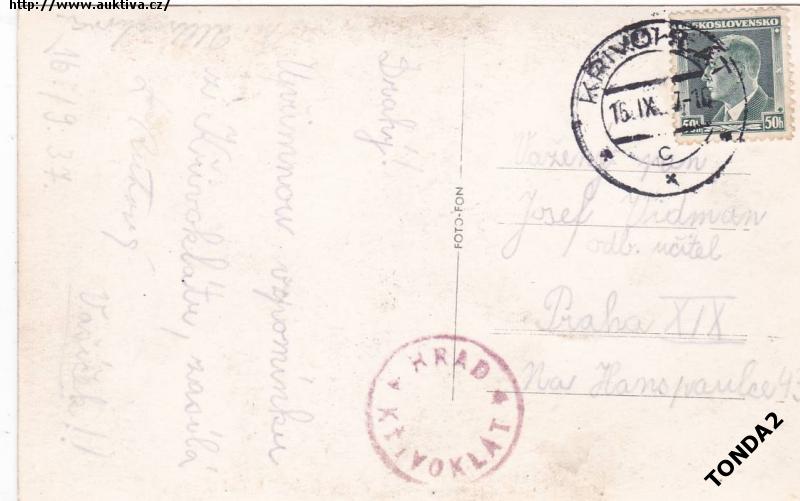 http://www.auktiva.cz/
ČESKOSLOVENSKO
50h 50h
KŘIVOKLÁT
16.IX. 7-10
C
Vážený pan
Josef Vidman
odb. učitel
Praha XIX
Na Hanspaulce 43
FOTO-FON
HRAD
KŘIVOKLÁT
Drahý!
Upřímnou vzpomínku
ze Křivoklátu, zasílá
16./9. 37.
TONDA2